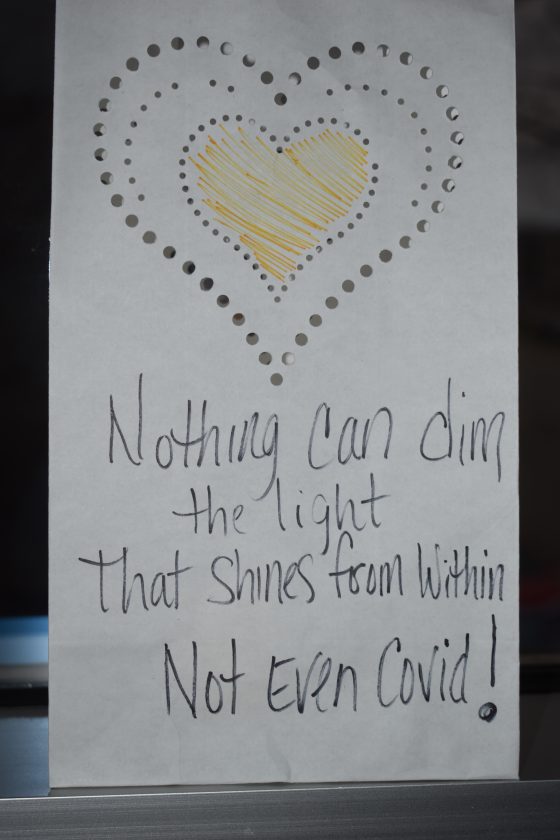 Nothing can dim
the light
That shines from Within
Not Even Covid!